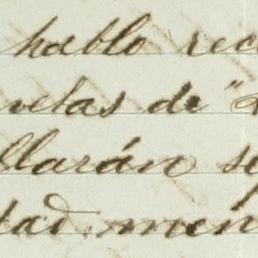 hablo rec
velas de "
llarán se
dad. men